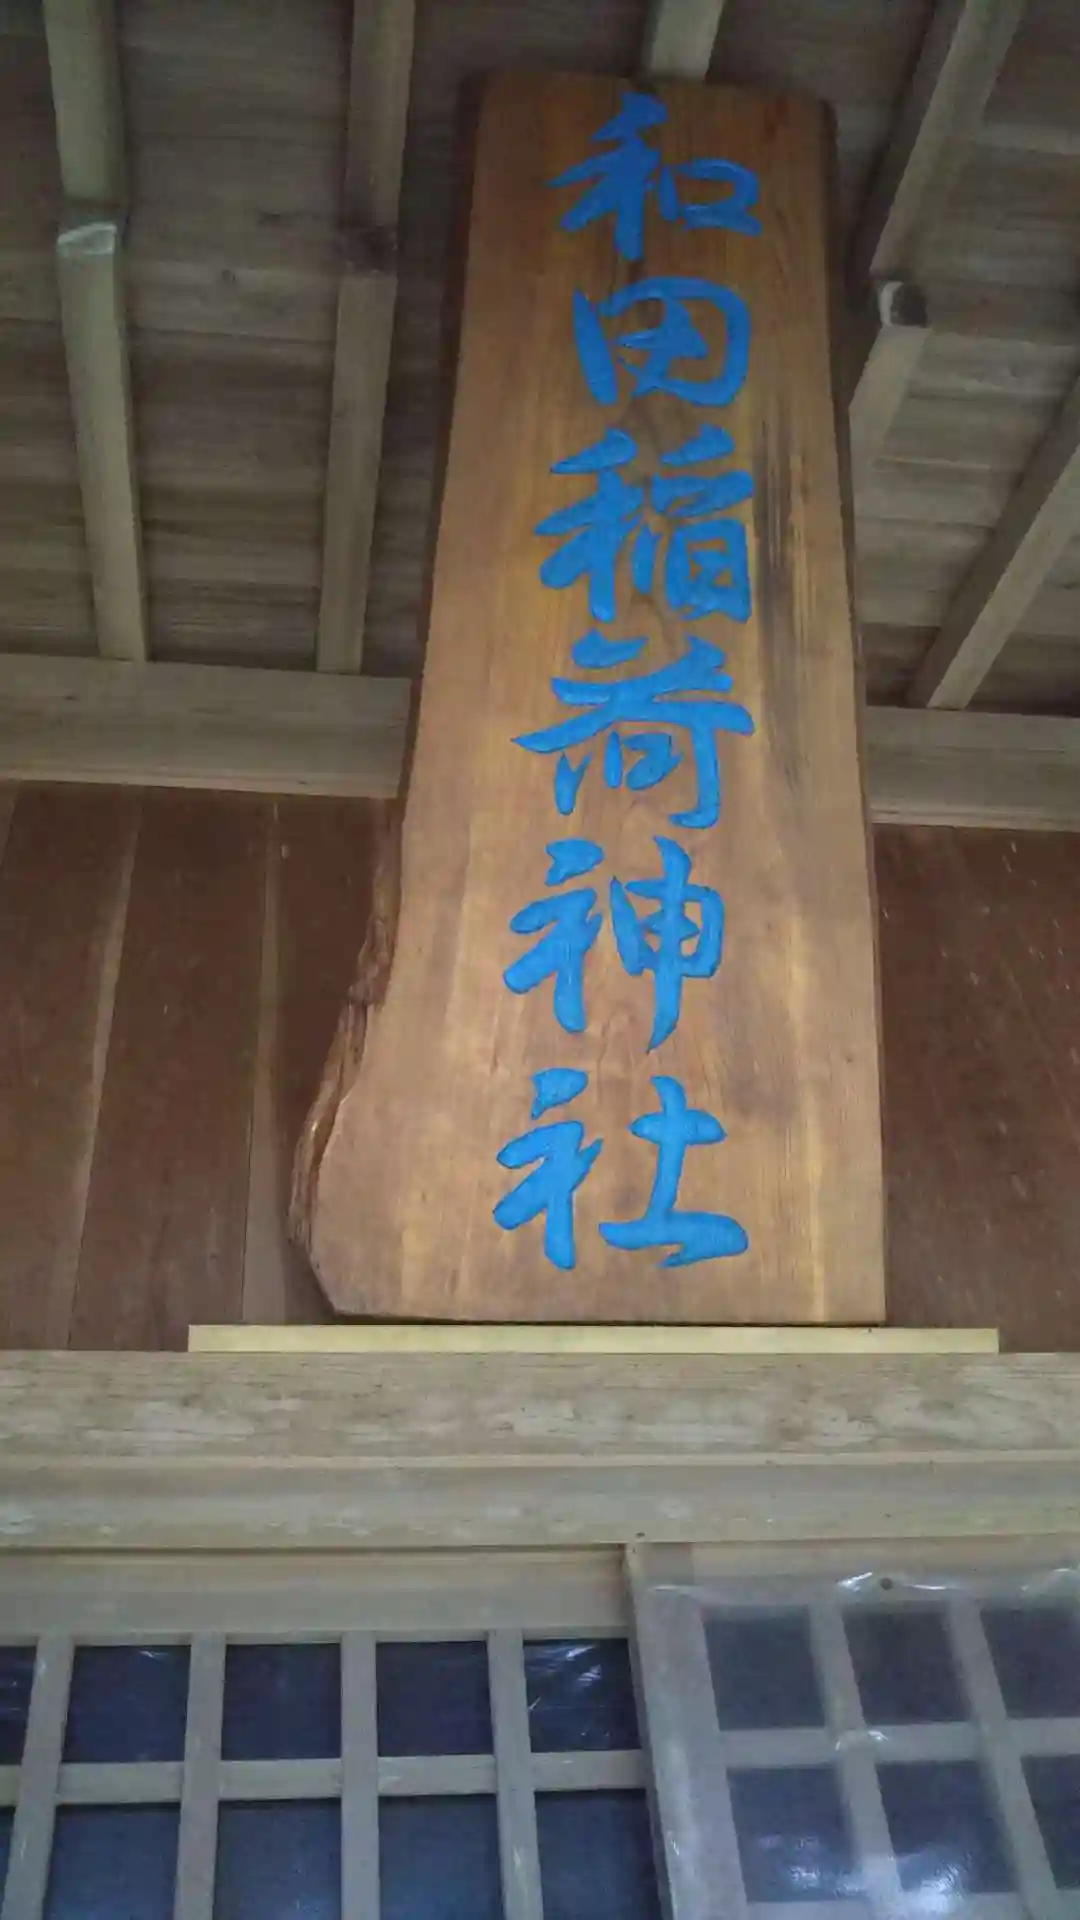 和田稲荷神社